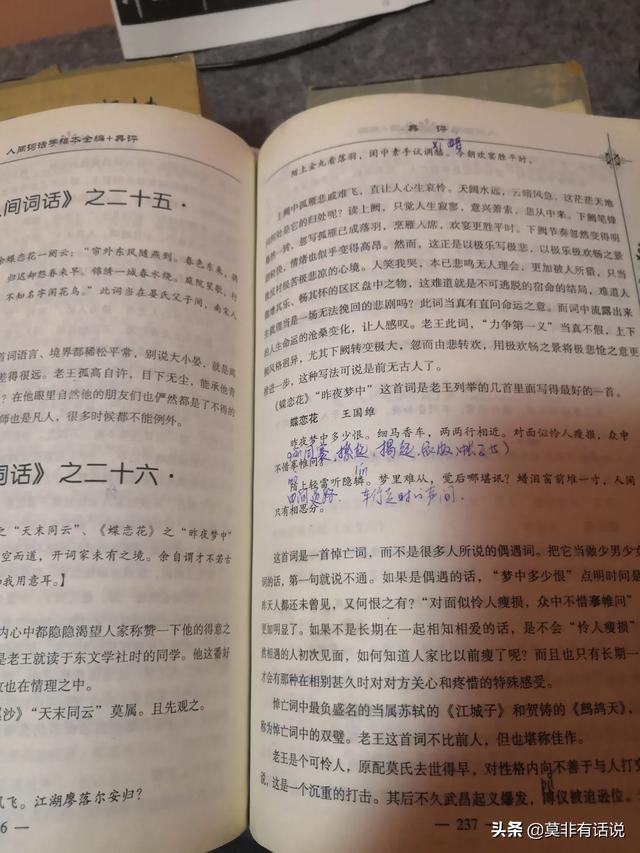 人间词话手稿本全编+典评
间词话》之二十五·
蝶恋花一阕云：“帘外东风随燕到。春色东来，
归迟却怨春来早。锦绣一城春水绕。庭院笙歌，行
不知名字闲花鸟。”此词当在晏氏父子间，南宋人
首词语言、境界都稀松平常，别说大小晏，就是
差得很远。老王孤高自许，目下无尘，能承青
？在他眼里自然他的朋友们也俨然都是了不得的
师也是凡人，很多时候都不能例外。
词话》之二十六·
之“天末同云”、《蝶恋花》之“昨夜梦中”
空而道，开词家未有之境。余自谓才不若古
和我用意耳。】
内心中都隐隐渴望人家称赞一下他的得意之
是老王就读于东文学社时的同学。他这番好
故也在情理之中。
沙》“天末同云”莫属。且先观之。
风飞。江湖廖落尔安归？
6 —
典 评
陌上金丸看落羽，闺中素手试调醯。今朝欢宴胜平时。
上阕中孤雁悲戚难飞，直让人心生哀怜。天阔水远，云暗风急，这茫茫天地
间何处是它的归处呢？读上阕，只觉人生寂寥，意兴萧索，悲从中来。下阕笔锋
一转，忽写孤雁已成落羽，烹雁入席，欢宴更胜平时。下阕节奏忽然变得明
快，情绪也似乎变得高昂。然而，这正是以极乐写极悲，以极乐极欢畅之景
反衬极苦极悲凉的心境。人笑我哭，本已悲鸣无人理会，更加被人所猎，只当
其乐、畅其怀的区区盘中之物，这难道就是不可逃脱的宿命的结局，难道人
生就理当是一场无法挽回的悲剧吗？此词当真有直问命运之意。而词中流露出来
的人生命运的沧桑变化，让人感叹。老王此词，“力争第一义”当真不假，上下
阕风格迥异，尤其下阕转变极大，忽而由悲转欢，用极欢畅之景将极悲怆之意更
进一步，这种写法可说是前无古人了。
《蝶恋花》“昨夜梦中”这首词是老王列举的几首里面写得最好的一首。
蝶恋花 王国维
昨夜梦中多少恨。细马香车，两两行相近。对面似怜人瘦损，众中
不惜搴帷问。
陌上轻雷听隐辚。梦里难从，觉后哪堪讯？蜡泪窗前堆一寸，人间
只有相思分。
田间道路 车行走时的声间
这首词是一首悼亡词，而不是很多人所说的偶遇词。把它当做少男少女
词的话，第一句就说不通。如果是偶遇的话，“梦中多少恨”点明时间是
昨天人都还未曾见，又何恨之有？“对面似怜人瘦损，众中不惜搴帷问”
更加明显了。如果不是长期在一起相知相爱的话，是不会“怜人瘦损”
然相遇的人初次见面，如何知道人家比以前瘦了呢？而且也只有长期一
才会有那种在相别甚久时对对方关心和疼惜的特殊感受。
悼亡词中最负盛名的当属苏轼的《江城子》和贺铸的《鹧鸪天》，
称为悼亡词中的双璧。老王这首词不比前人，但也堪称佳作。
老王是个可怜人，原配莫氏去世得早，对性格内向不善于与人打交
说，这是一个沉重的打击。其后不久武昌起义爆发，溥仪被迫逊位。
— 237 —
头条 @莫非有话说